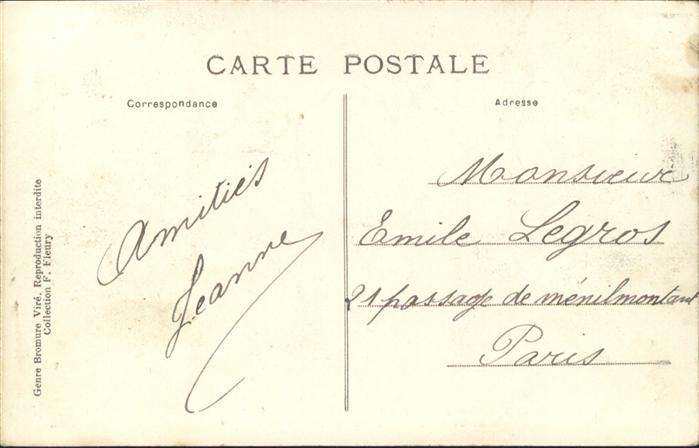 CARTE POSTALE
Correspondance
Adresse
Amitiés
Jeanne
Monsieur
Emile Legros
21 passage de ménilmontant
Paris
Genre Bromure Viré, Reproduction interdite
Collection F. Fleury